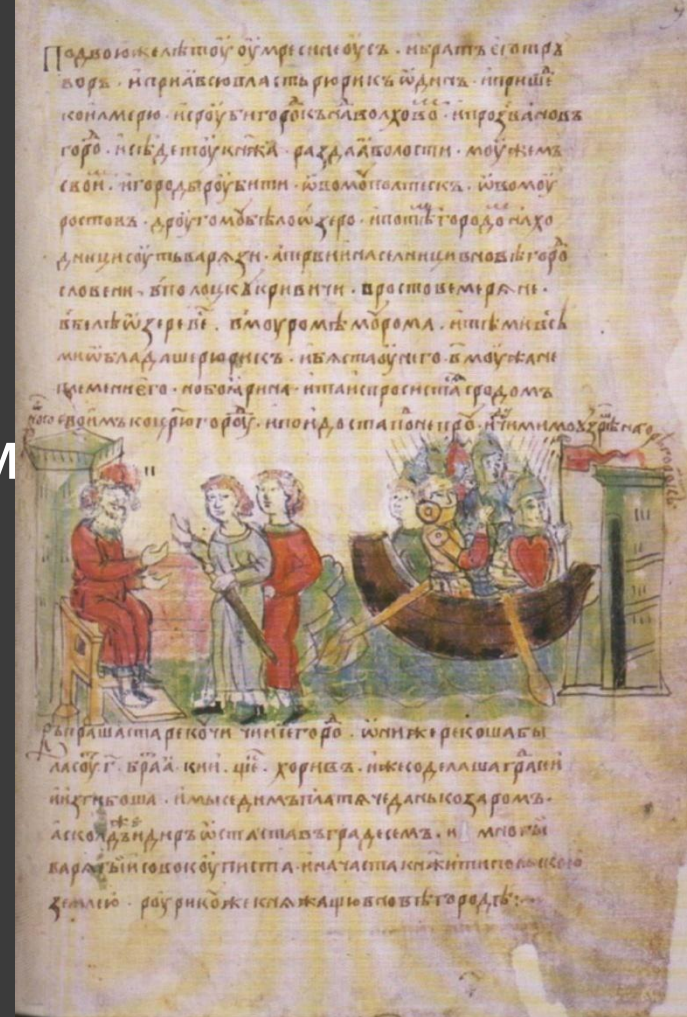 Подвоюжелѣтоу оумресинеоусъ · ибратъ егⷪ трꙋ
воръ · иприꙗ всю власть рюрикъ ѿдинъ · ипришеⷣ
коилмерю · исроуби гороⷣкъ наⷣ волховоⷨ · ипрозва новъ
гороⷣ · исѣдетоу кнжа · раздаꙗ волости · моужемъ
своиⷨ · игороды роубити · ѡвомоу полтескъ · ѡвомоу
ростовъ · дроугомоу бѣлоѡзеро · ипотѣⷨ городоⷨ нахо
дници соуть варязи · апервии населници вновѣгороⷣ
словени · вполоцкъ кривичи · вростове меряне ·
вбелѣѡзере веⷭ · вмоуромѣ моурома · итѣми всѣ
ми ѡбладаше рюрикъ · ибяста оунего · в моужа не
племени его · нобоꙗрина · итаиспросистасⷶ сродомъ
своимъ коцрюгороⷣу · ипоидоста понепроу · мимо
въпрашаста рекочи чиисегороⷣ · ѡниже рекоша бы
ласоу · г · браⷮꙗ · кии · щеⷦ · хоривъ · иже соделаша граⷣ сии
иизгибоша · имы седимъ платяче дань козаромъ ·
асколдъ же идиръ ѡстаста въ граде семъ · и многы
варягы совокоуписта · иначаста кнжити польскою
землею · роурикоу же княжащю вновѣгородѣ :~